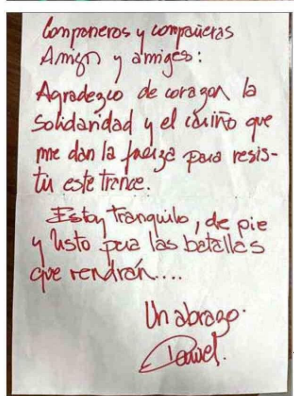 Compañeros y compañeras
Amigos y amigas:
Agradezco de corazon la
Solidaridad y el cariño que
me dan la fuerza para resis-
tir este trance.
Estoy tranquilo, de pie
y listo para las batallas
que vendrán....
Un abrazo.
Daniel.